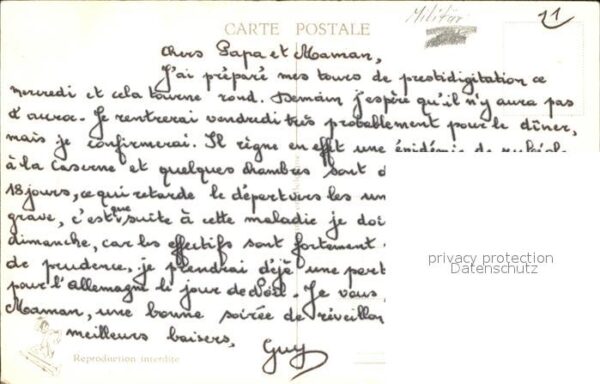 CARTE POSTALE
Militär
21
Chers Papa et Maman,
J'ai préparé mes tours de prestidigitation ce
mercredi et cela tourne rond. Demain j'espère qu'il n'y aura pas
d'aura. Je rentrerai vendredi très probablement pour le dîner,
mais je confirmerai. Il règne en effet une épidémie de
à la caserne et quelques chambres sont
18 jours, ce qui retarde le départ vers les
grave, c'est que suite à cette maladie je doi
dimanche, car les effectifs sont fortement
de prudence, je prendrai déjà une
pour l'Allemagne le jour de Noël. Je vous
Maman, une bonne soirée de réveillon
meilleurs baisers,
Guy
Reproduction interdite
privacy protection
Datenschutz